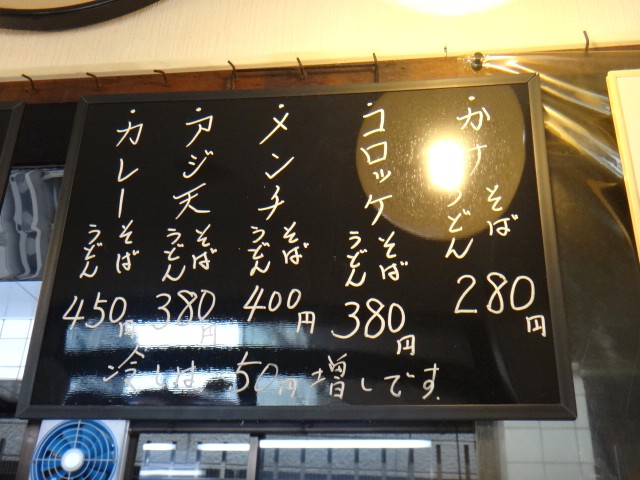 ・かけ そば うどん 280円
・コロッケ そば うどん 380円
・メンチ そば うどん 400円
・アジ天 そば うどん 380円
・カレー そば うどん 450円
冷しは 50円増しです.